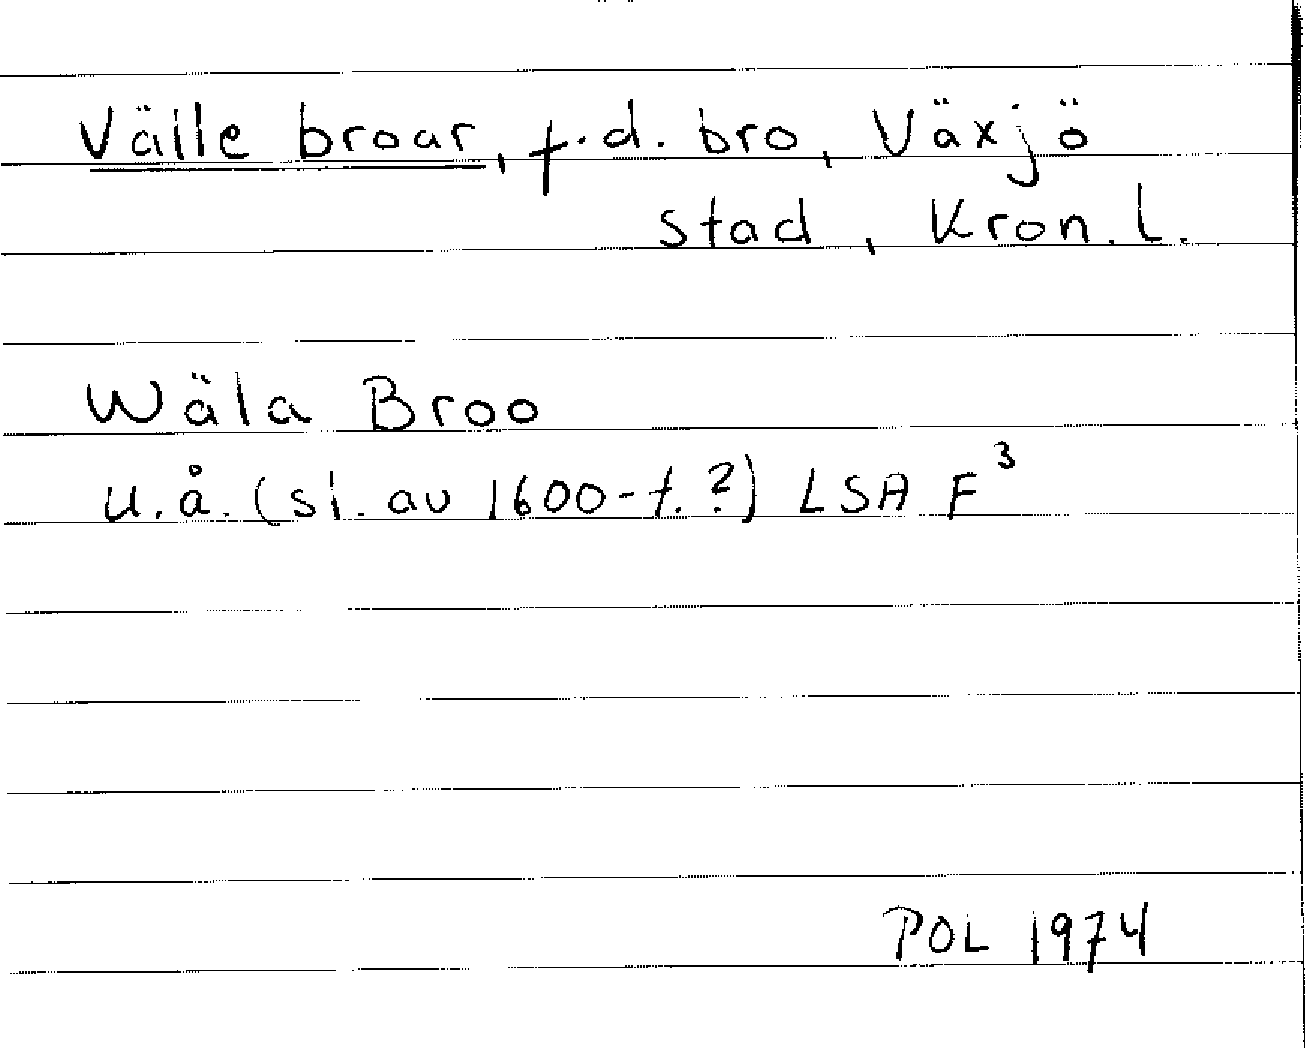 Välle broar, f.d. bro, Växjö
stad, Kron. l.
Wäla Broo
u.å. (sl. av 1600-t.?) LSA F³
POL 1974